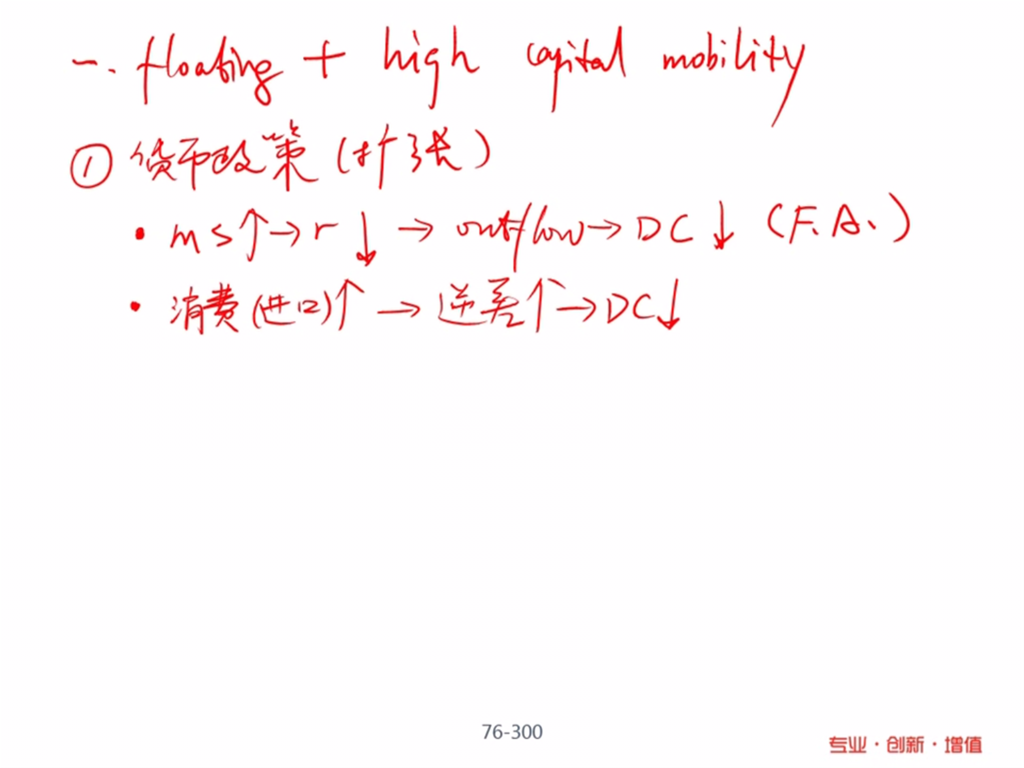 一. floating + high capital mobility
① 货币政策 (扩张)
• ms↑→r↓→outflow→DC↓ (F.A.)
• 消费(进口)↑→逆差↑→DC↓
76-300
专业·创新·增值